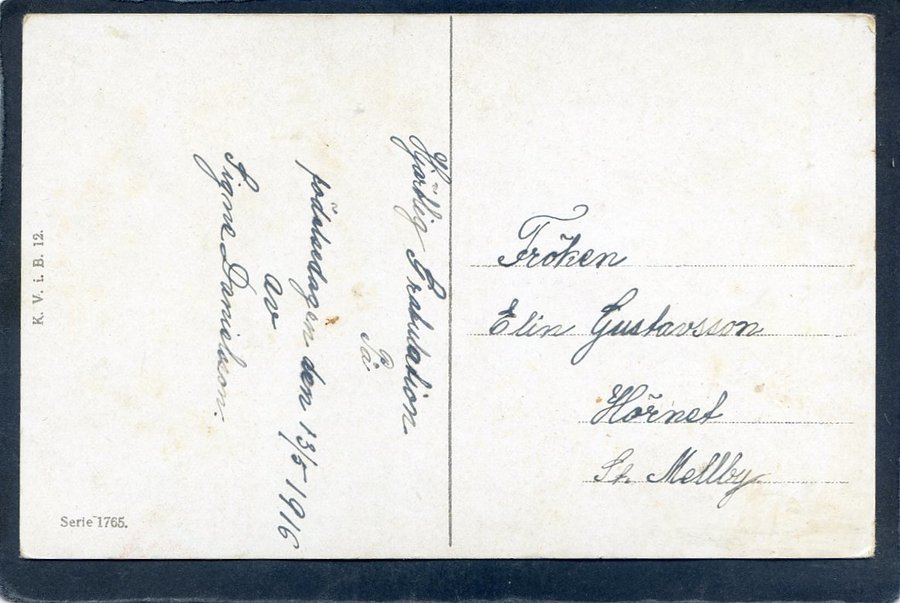 Hjärtlig Gratulation
På
födelsedagen den 13/5 1916
av
Signe Danielsson.
Fröken
Elin Gustavsson
Hörnet
St. Mellby
K. V. i. B. 12.
Serie 1765.